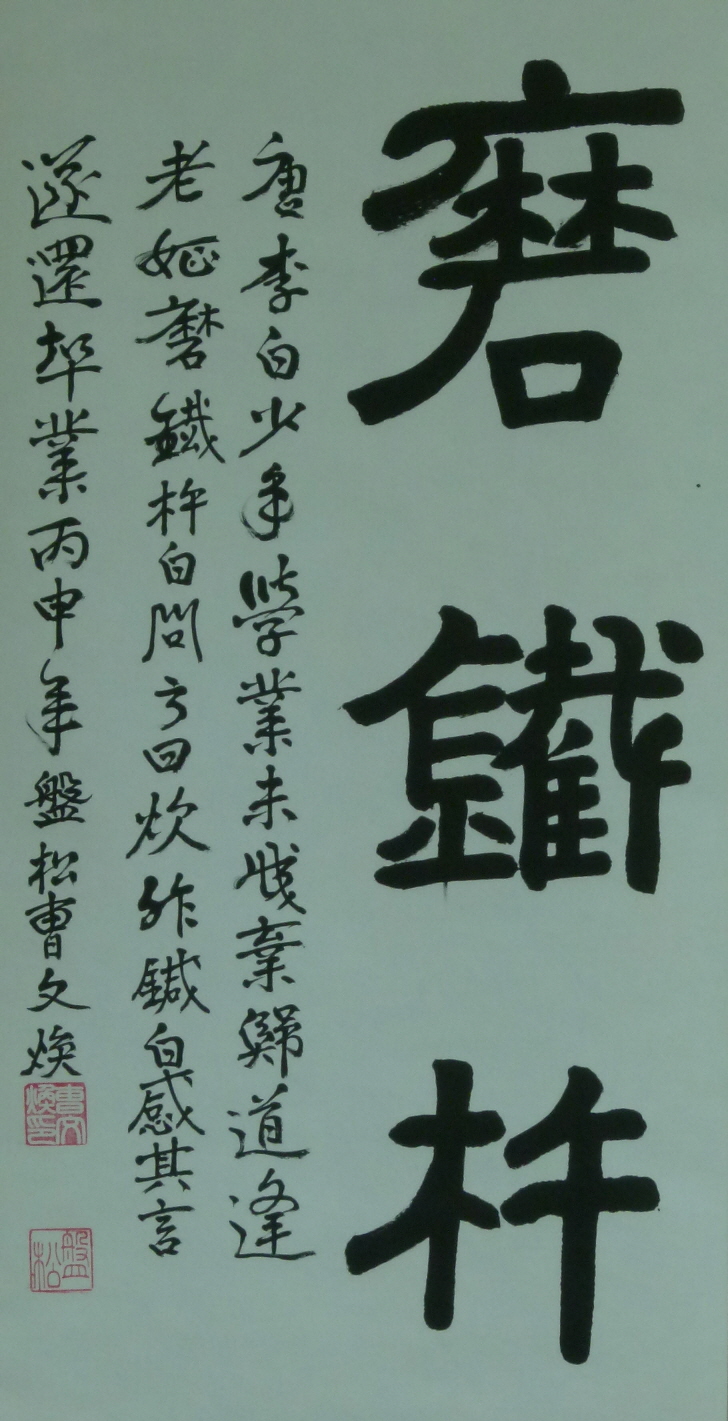 磨鐵杵
唐李白少年學業未成棄歸道逢
老嫗磨鐵杵白問之曰欲作鍼白感其言
遂還卒業丙申年盤松曹文煥
曹文煥印
盤松